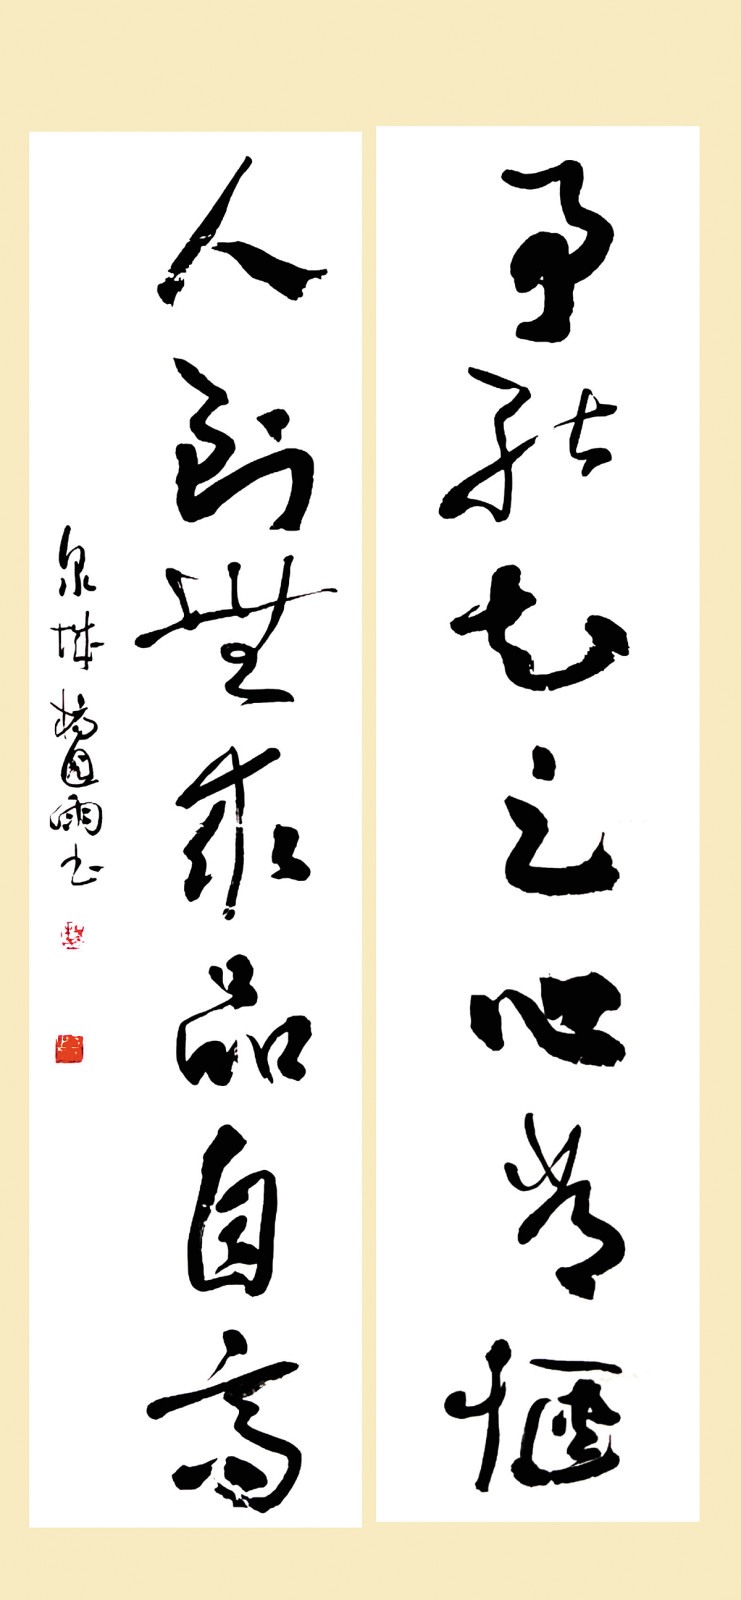 事能知足心常愜
人到無求品自高
泉城国雨书